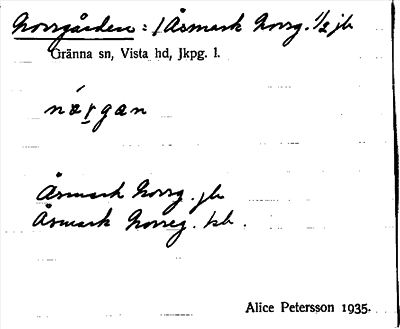 Norrgården : / Åsmark Norrg. 1/2 jb
Gränna sn, Vista hd, Jkpg. l.
nærgan
Åsmark Norrg. jb
Åsmark Norreg. kb.
Alice Petersson 1935.